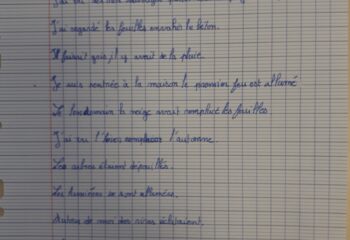 J'ai regardé les feuilles envahir le béton.
Il faisait gris, il y avait de la pluie.
Je suis rentrée à la maison le premier feu est allumé
Le lendemain la neige avait remplacé les feuilles.
J'ai vu l'hiver remplacer l'automne.
Les arbres étaient dépouillés.
Les lumières se sont allumées.
Autour de moi des rires éclataient.